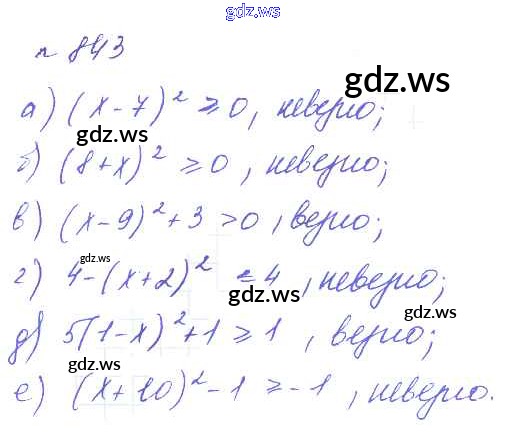 gdz.ws
n 843
а) (x-7)² ≥ 0, неверно;
gdz.ws
gdz.ws
б) (8+x)² ≥ 0, неверно;
в) (x-9)² + 3 > 0, верно;
gdz.ws
г) 4-(x+2)² ≤ 4, неверно;
gdz.ws
gdz.ws
д) 5(1-x)² + 1 ≥ 1, верно;
gdz.ws
е) (x+10)² - 1 ≥ -1, неверно.
gdz.ws